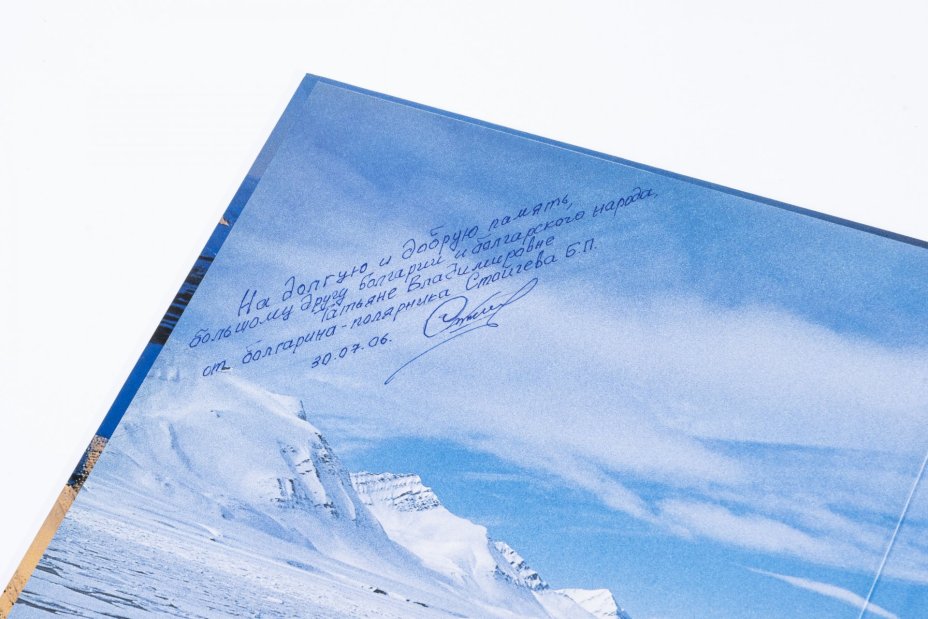 На долгую и добрую память,
большому другу болгарии и болгарского народа,
Татьяне Владимировне
от болгарина-полярника Стойчева Б.П.
30.07.06.